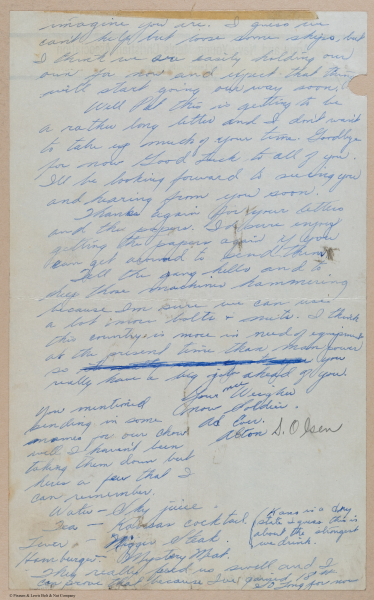 imagine you are. I guess we
can't help but loose some ships, but
I think we are easily holding our
own for now and expect that things
will start going our way soon.
Well Pat this is getting to be
a rather long letter and I don't want
to take up much of your time. Goodbye
for now Good Luck to all of you.
I'll be looking forward to seeing you
and hearing from you soon.
Thanks again for your letters
and the papers. I sure enjoy
getting the papers again if you
can get around to send them.
Tell the gang hello and to
keep those machines hammering
because I'm sure we can use
a lot more bolts & nuts. I think
this country is more in need of equipment
at the present time than man power
so you
really have a big job ahead of you.
Your
now Soldier.
As Ever
Alton S. Olsen
You mentioned
sending in some
names for our chow
well I haven't been
taking them down but
here's a few that I
can remember.
Water - Sky juice.
Tea - cocktail.
Liver - Nigger Steak.
Hamburger - Mystery Meat.
(Kansas is a dry
state I guess this is
about the strongest
we drink.
They really feed us swell and I
can prove that because I've gained
So long for now
© Pickens & Lewis Bolt & Nut Company